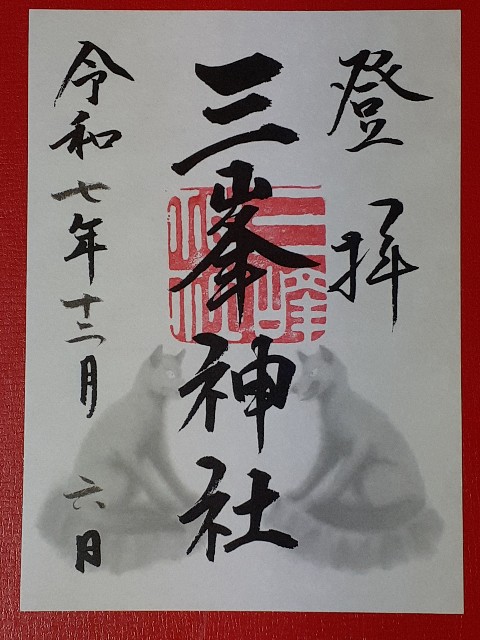 登拝
三峯神社
令和七年十二月六日